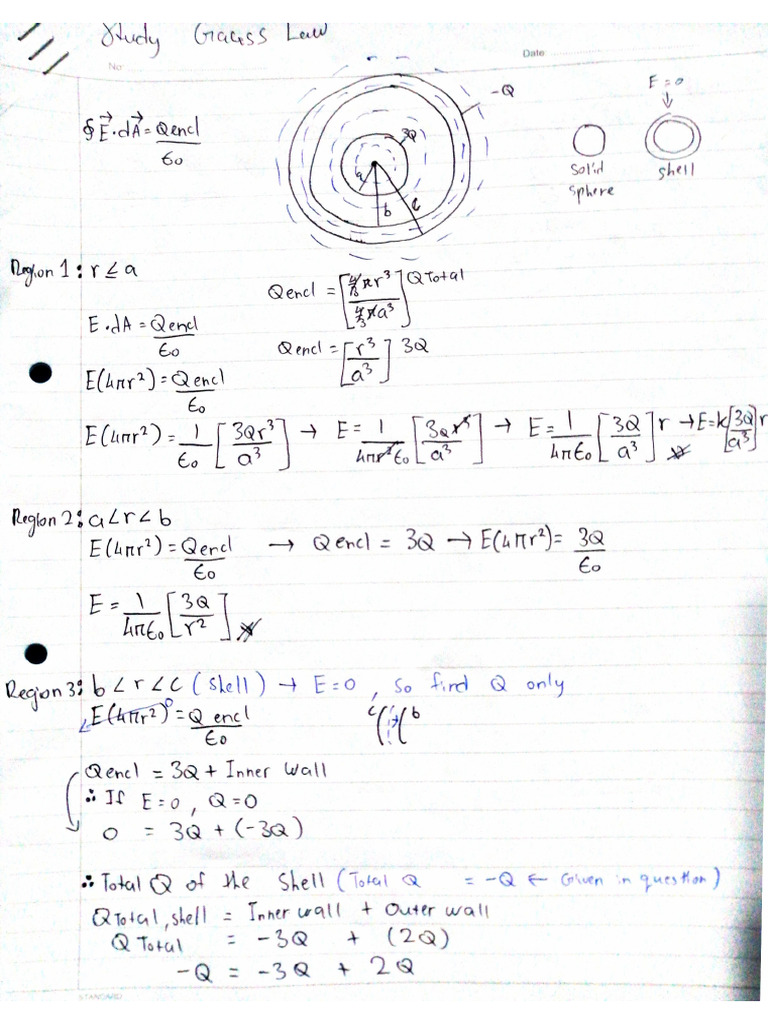 Study Gauss Law
No:
Date:
∮E⃗.dA⃗ = Qencl/ε0
-Q
3Q
a
b
c
E=0
solid sphere
shell
Region 1: r ≤ a
Qencl = [4/3 πr³ / 4/3 πa³] QTotal
E.dA = Qencl/ε0
Qencl = [r³/a³] 3Q
E(4πr²) = Qencl/ε0
E(4πr²) = 1/ε0 [3Qr³/a³] → E = 1/4πr²ε0 [3Qr³/a³] → E = 1/4πε0 [3Q/a³] r → E = k[3Q/a³]r
Region 2: a<r<b
E(4πr²) = Qencl/ε0 → Qencl = 3Q → E(4πr²) = 3Q/ε0
E = 1/4πε0 [3Q/r²]
Region 3: b<r<c (shell) → E=0, so find Q only
E(4πr²)⁰ = Qencl/ε0
c b
Qencl = 3Q + Inner wall
∴ If E=0, Q=0
0 = 3Q + (-3Q)
∴ Total Q of the shell (Total Q = -Q ← Given in question)
QTotal, shell = Inner wall + Outer wall
QTotal = -3Q + (2Q)
-Q = -3Q + 2Q
STANDARD